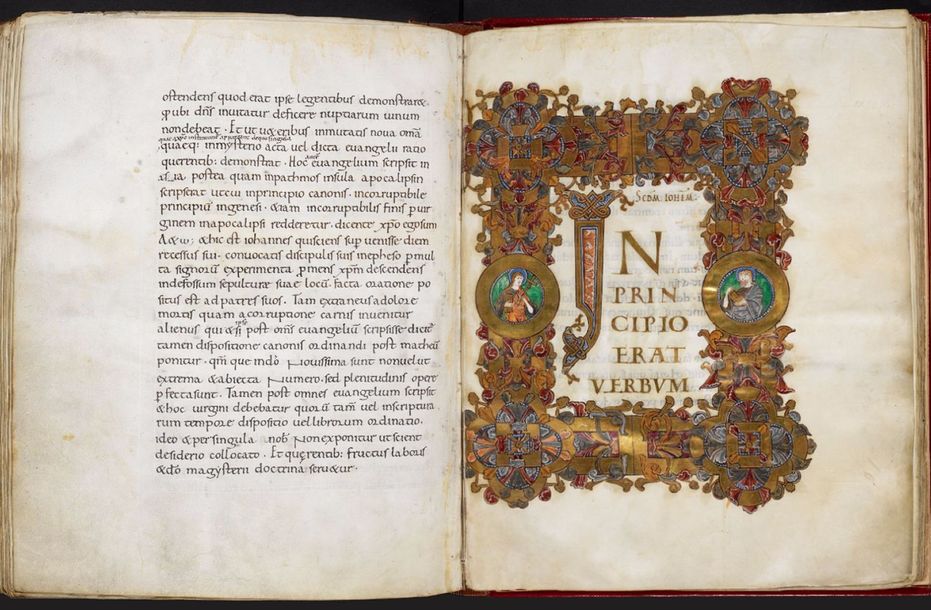 ostendens quod erat ipse legentibus demonstraret
& ubi dn̄s inuitatur deficere nuptiarum uinum
nondebeat · Et ut ueteribus inmutatis noua om̄a
quaeq: inmysterio acta uel dicta euangelii ratio
querentib: demonstrat · Hoc euangelium scripsit in
asia postea quam inpathmos insula apocalipsin
scripserat ut cui inprincipio canonis · incorruptibile
principiū ingenesi · etiam incorruptibilis finis p uir
ginem inapocalipsi redderetur · dicente xp̄o ego sum
A & ω; & hic est iohannes qui sciens sup uenisse diem
recessus sui · conuocatis discipulis suis inepheso p mul
ta signorū experimenta promens xp̄m descendens
indefossum sepulturae suae locū · facta oratione po
situs est ad patres suos · Tam extraneus adolore
mortis quam a corruptione carnis inuenitur
alienus qui & si post om̄s euangeliū scripsisse
tamen dispositione canonis ordinandi post matheū
ponitur · qm̄ que in dn̄o Nouissima sunt non uelut
extrema & abiecta Numero · sed plenitudinis opere
p fecta sunt · Tamen post omnes euangelium scripsit
& hoc uirgini debebatur quorū tam̄ uel inscriptura
rum tempore dispositio uel librorum ordinatio ·
ideo & per singula nob̄ Non exponitur ut scient
desiderio collocato · Et querentib: fructus laboris
& dō magysterii doctrina seruetur ·
SCDM · IOHEM ·
IN
PRIN
CIPIO
ERAT
VERBVM